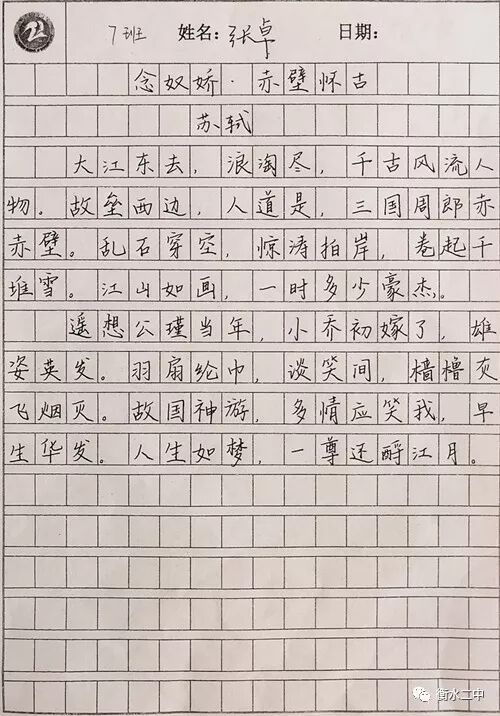 7班 姓名：张卓 日期：
念奴娇·赤壁怀古
苏轼
大江东去，浪淘尽，千古风流人
物。故垒西边，人道是，三国周郎赤
赤壁。乱石穿空，惊涛拍岸，卷起千
堆雪。江山如画，一时多少豪杰。
遥想公瑾当年，小乔初嫁了，雄
姿英发。羽扇纶巾，谈笑间，樯橹灰
飞烟灭。故国神游，多情应笑我，早
生华发。人生如梦，一尊还酹江月。
衡水二中